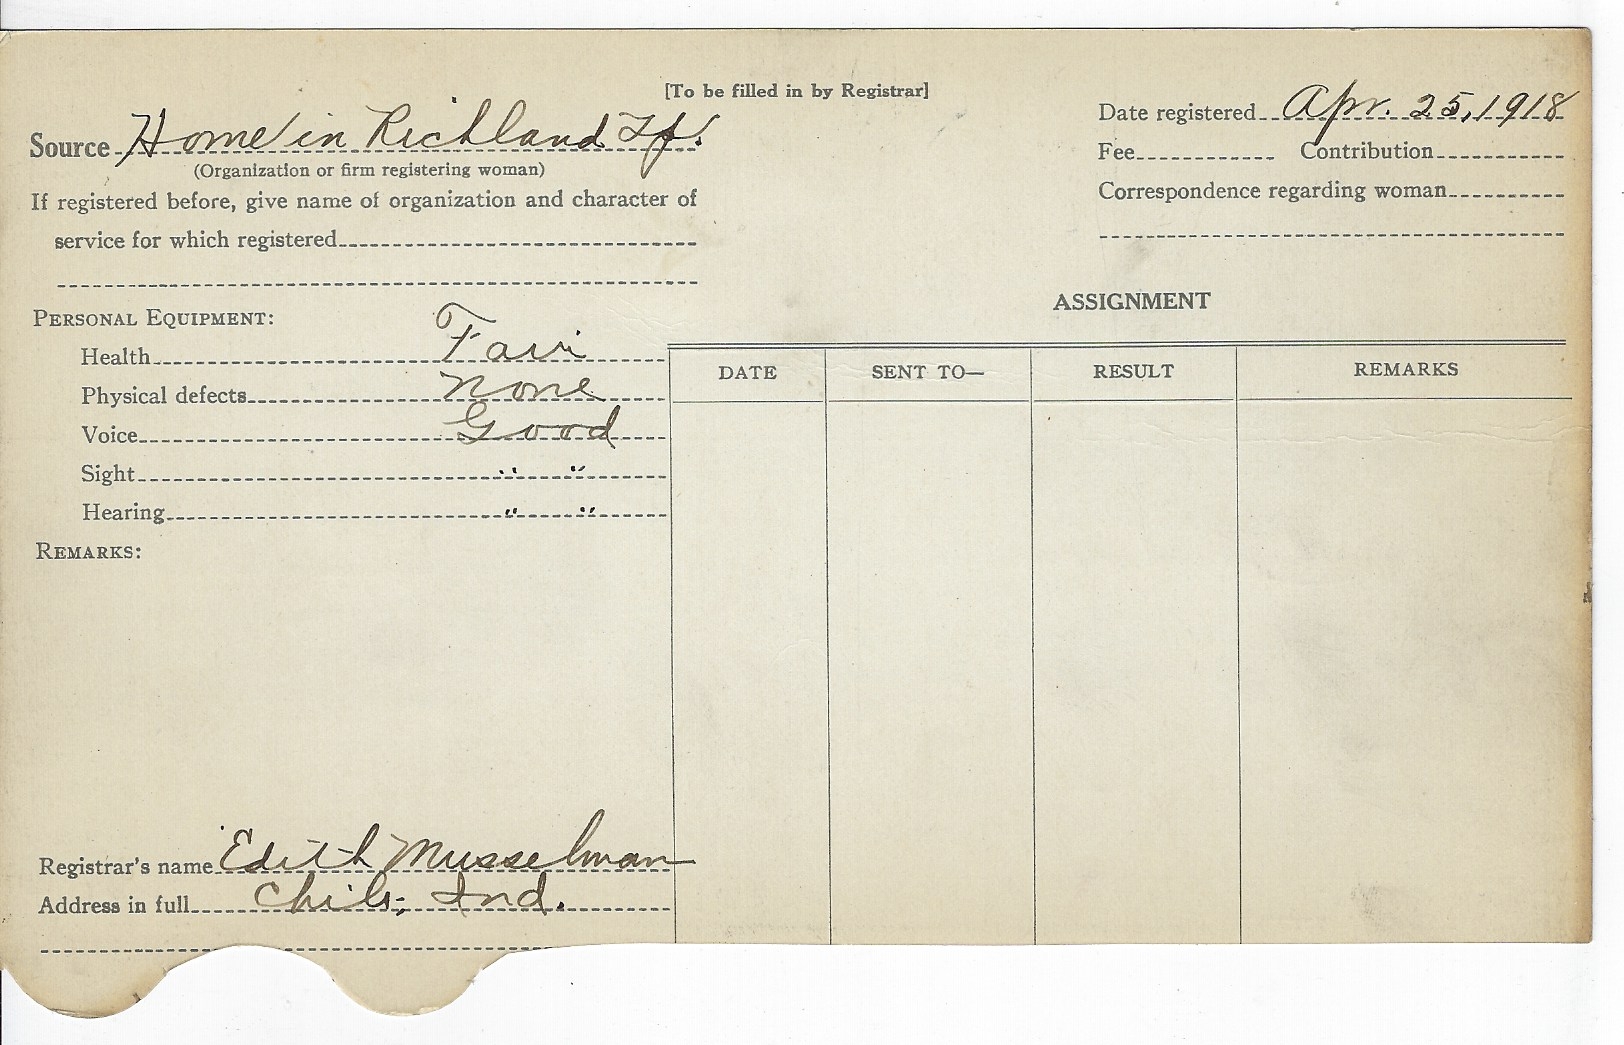 [To be filled in by Registrar]
Source Home in Richland Tp.
(Organization or firm registering woman)
If registered before, give name of organization and character of
service for which registered
Date registered Apr. 25, 1918
Fee Contribution
Correspondence regarding woman
PERSONAL EQUIPMENT:
Health Fair
Physical defects None
Voice Good
Sight " "
Hearing " "
REMARKS:
Registrar's name Edith Musselman
Address in full Chili, Ind.
ASSIGNMENT
DATE SENT TO— RESULT REMARKS